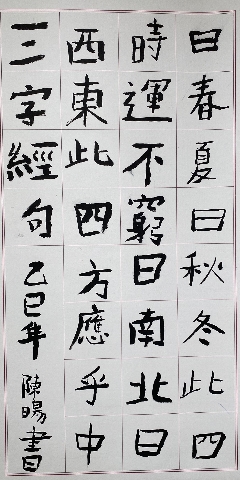 曰春夏曰秋冬此四
時運不窮曰南北曰
西東此四方應乎中
三字經句 乙巳年 陳暘書